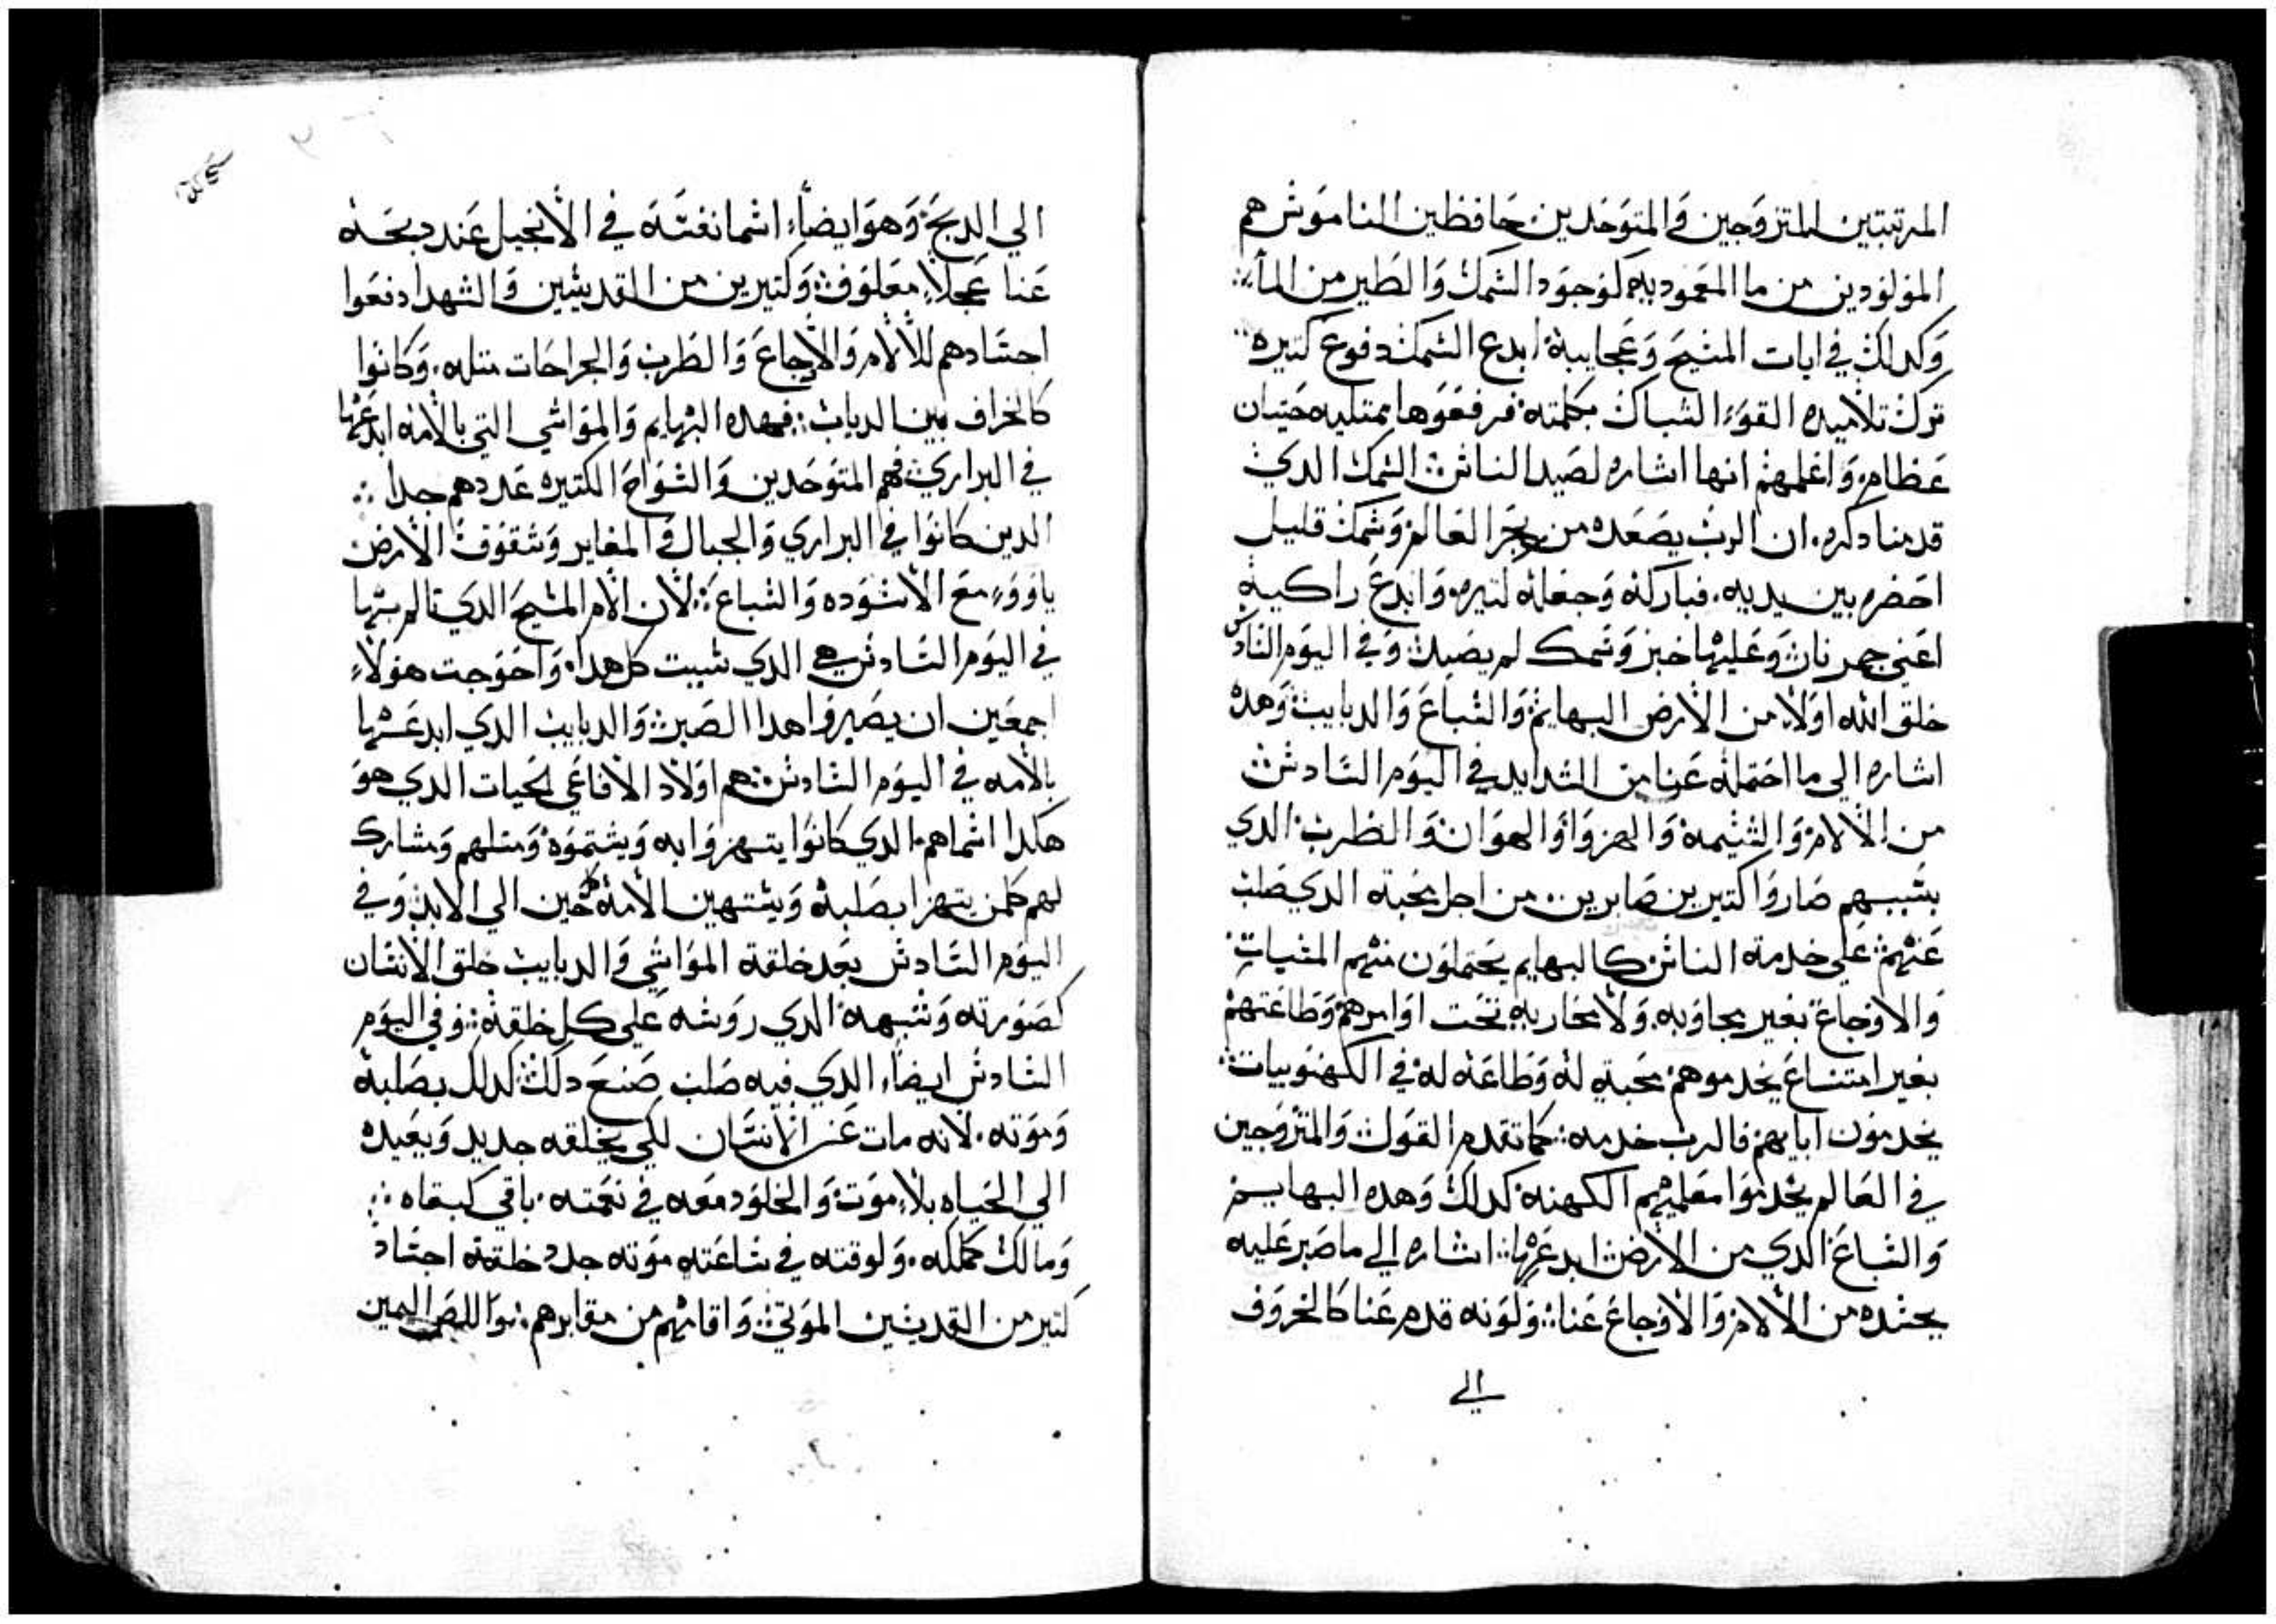 المرتبتين المتزوجين والمتوحدين حافظين الناموس هم
المولودين من ما المعموديه كوجود السمك والطير من الماء
وكدلك في ايات المسيح وعجايبة ابدع السمك دفوع كتيره
ترك تلاميده القوا الشباك بكلمته فرفعوها ممتليه حيتان
عظام واعلمهم انها اشاره لصيد الناس السمك الدي
قدمنا دكره ان الرب يصعده من بحر العالم وسمك قليل
احضره بين يديه فباركه وجعله كتيره وابدع راكية
اعني جمر نار وعليها خبز وسمك لم يصيد وفي اليوم السادس
خلق الله اولا من الارض البهايم والسباع والدبايب وهده
اشاره الي ما احتمله عنا من الشدايد في اليوم السادس
من الالام والشتيمة والهزوا والهوان والضرب الدي
بسببهم صاروا كتيرين صابرين من اجل محبته الدي صلب
عنهم علي خدمة الناس كالبهايم يحتملون منهم السيات
والاوجاع بغير مجاوبه ولا محاربه تحت اوامرهم وطاعتهم
بغير امتناع يخدموهم محبة له وطاعة له في الكهنوبيات
يخدمون ابايهم فالرب خدمه كما تقدم القول والمتزوجين
في العالم يخدموا معلميهم الكهنة كدلك وهده البهايم
والسباع الدي من الارض ابدعها اشاره الي ما صبر عليه
بجسده من الالام والاوجاع عنا ولونه قدم عنا كالخروف
الي
الي الدبح وهو ايضا اسما نفسه في الانجيل عند دبحه
عنا عجلا معلوف وكتيرين من القديسين والشهدا دفعوا
اجسادهم للالام والاوجاع والضرب والجراحات متله وكانوا
كالخراف بين الدياب فهده البهايم والمواشي التي بالامه ابدعها
في البراري فهم المتوحدين والسواح الكتيره عددهم جدا
الدين كانوا في البراري والجبال والمغاير وشقوف الارض
ياووا مع الاسوده والسباع لان الام المسيح الدي تالم بها
في اليوم السادس هي الدي سببت كل هدا واحوجت هولاء
اجمعين ان يصيروا هدا الصبر والدبايب الدي ابدعها
بالامه في اليوم السادس هم اولاد الافاعي الحيات الدي هو
هكدا اسماهم الدي كانوا يتهزوا به ويشتموه ومتلهم ومشارك
لهم كلمن يتهزا بصلبة ويستهين الامه حين الي الابد وفي
اليوم السادس بعد خلقة المواشي والدبايب خلق الانسان
كصورته وشبهه الدي روسه علي كل خلقة وفي اليوم
السادس ايضا الدي فيه صلب صنع دلك كدلك بصلبة
وموته لانه مات عن الانسان لكي يخلقه جديد ويعيده
الي الحياه بلا موت والخلود معه في نعمته باقي كبقاه
ومالك كملكه ولوقته في ساعته موته جدد خلقة اجساد
كتير من القديسين الموتي واقامهم من مقابرهم اليمين